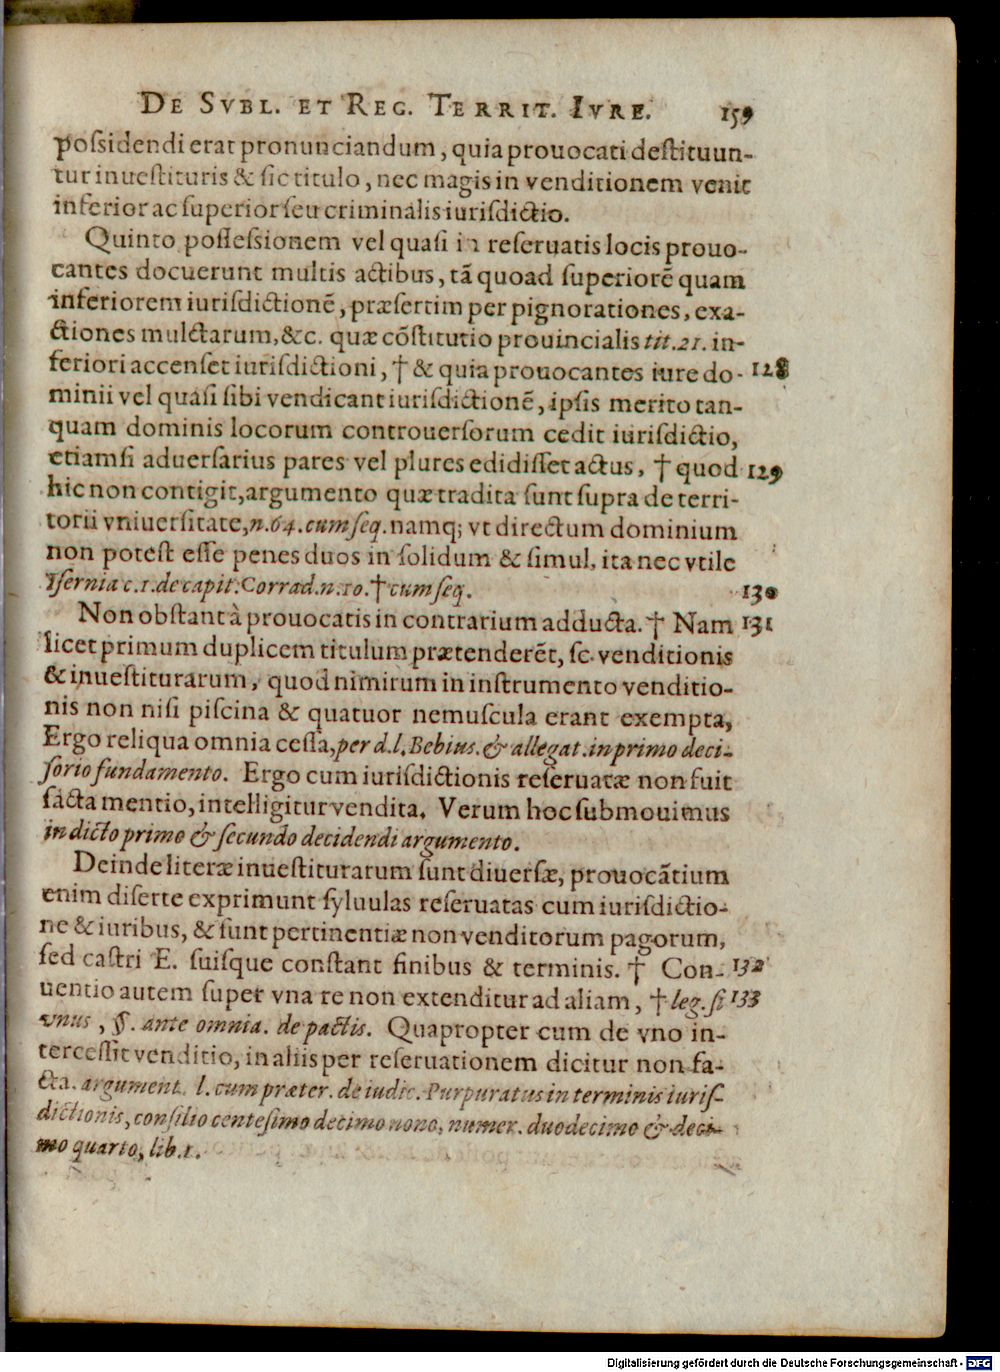 DE SVBL. ET REG. TERRIT. IVRE. 159
possidendi erat pronunciandum, quia prouocati destituun-
tur inuestituris & sic titulo, nec magis in venditionem venit
inferior ac superior seu criminalis iurisdictio.
Quinto possessionem vel quasi in reseruatis locis prouo-
cantes docuerunt multis actibus, tā quoad superiorē quam
inferiorem iurisdictionē, præsertim per pignorationes, exa-
ctiones mulctarum, &c. quæ cōstitutio prouincialis tit. 21. in-
feriori accenset iurisdictioni, † & quia prouocantes iure do- 128
minii vel quasi sibi vendicant iurisdictionē, ipsis merito tan-
quam dominis locorum controuersorum cedit iurisdictio,
etiamsi aduersarius pares vel plures edidisset actus, † quod 129
hic non contigit, argumento quæ tradita sunt supra de terri-
torii vniuersitate, n. 64. cum seq. namq; vt directum dominium
non potest esse penes duos in solidum & simul, ita nec vtile
Isernia c. 1. de capit. Corrad. n. 10. † cum seq. 130
Non obstant à prouocatis in contrarium adducta. † Nam 131
licet primum duplicem titulum prætenderēt, sc. venditionis
& inuestiturarum, quod nimirum in instrumento venditio-
nis non nisi piscina & quatuor nemuscula erant exempta,
Ergo reliqua omnia cessa, per d. l. Bebius. & allegat. in primo deci-
sorio fundamento. Ergo cum iurisdictionis reseruatæ non fuit
facta mentio, intelligitur vendita. Verum hoc submouimus
in dicto primo & secundo decidendi argumento.
Deinde literæ inuestiturarum sunt diuersæ, prouocātium
enim diserte exprimunt syluulas reseruatas cum iurisdictio-
ne & iuribus, & sunt pertinentiæ non venditorum pagorum,
sed castri E. suisque constant finibus & terminis. † Con- 132
uentio autem super vna re non extenditur ad aliam, † leg. si 133
vnus, §. ante omnia. de pactis. Quapropter cum de vno in-
tercessit venditio, in aliis per reseruationem dicitur non fa-
cta. argument. l. cum præter. de iudic. Purpuratus in terminis iuris-
dictionis, consilio centesimo decimo nono, numer. duodecimo & deci-
mo quarto, lib. 1.
Digitalisierung gefördert durch die Deutsche Forschungsgemeinschaft - DFG